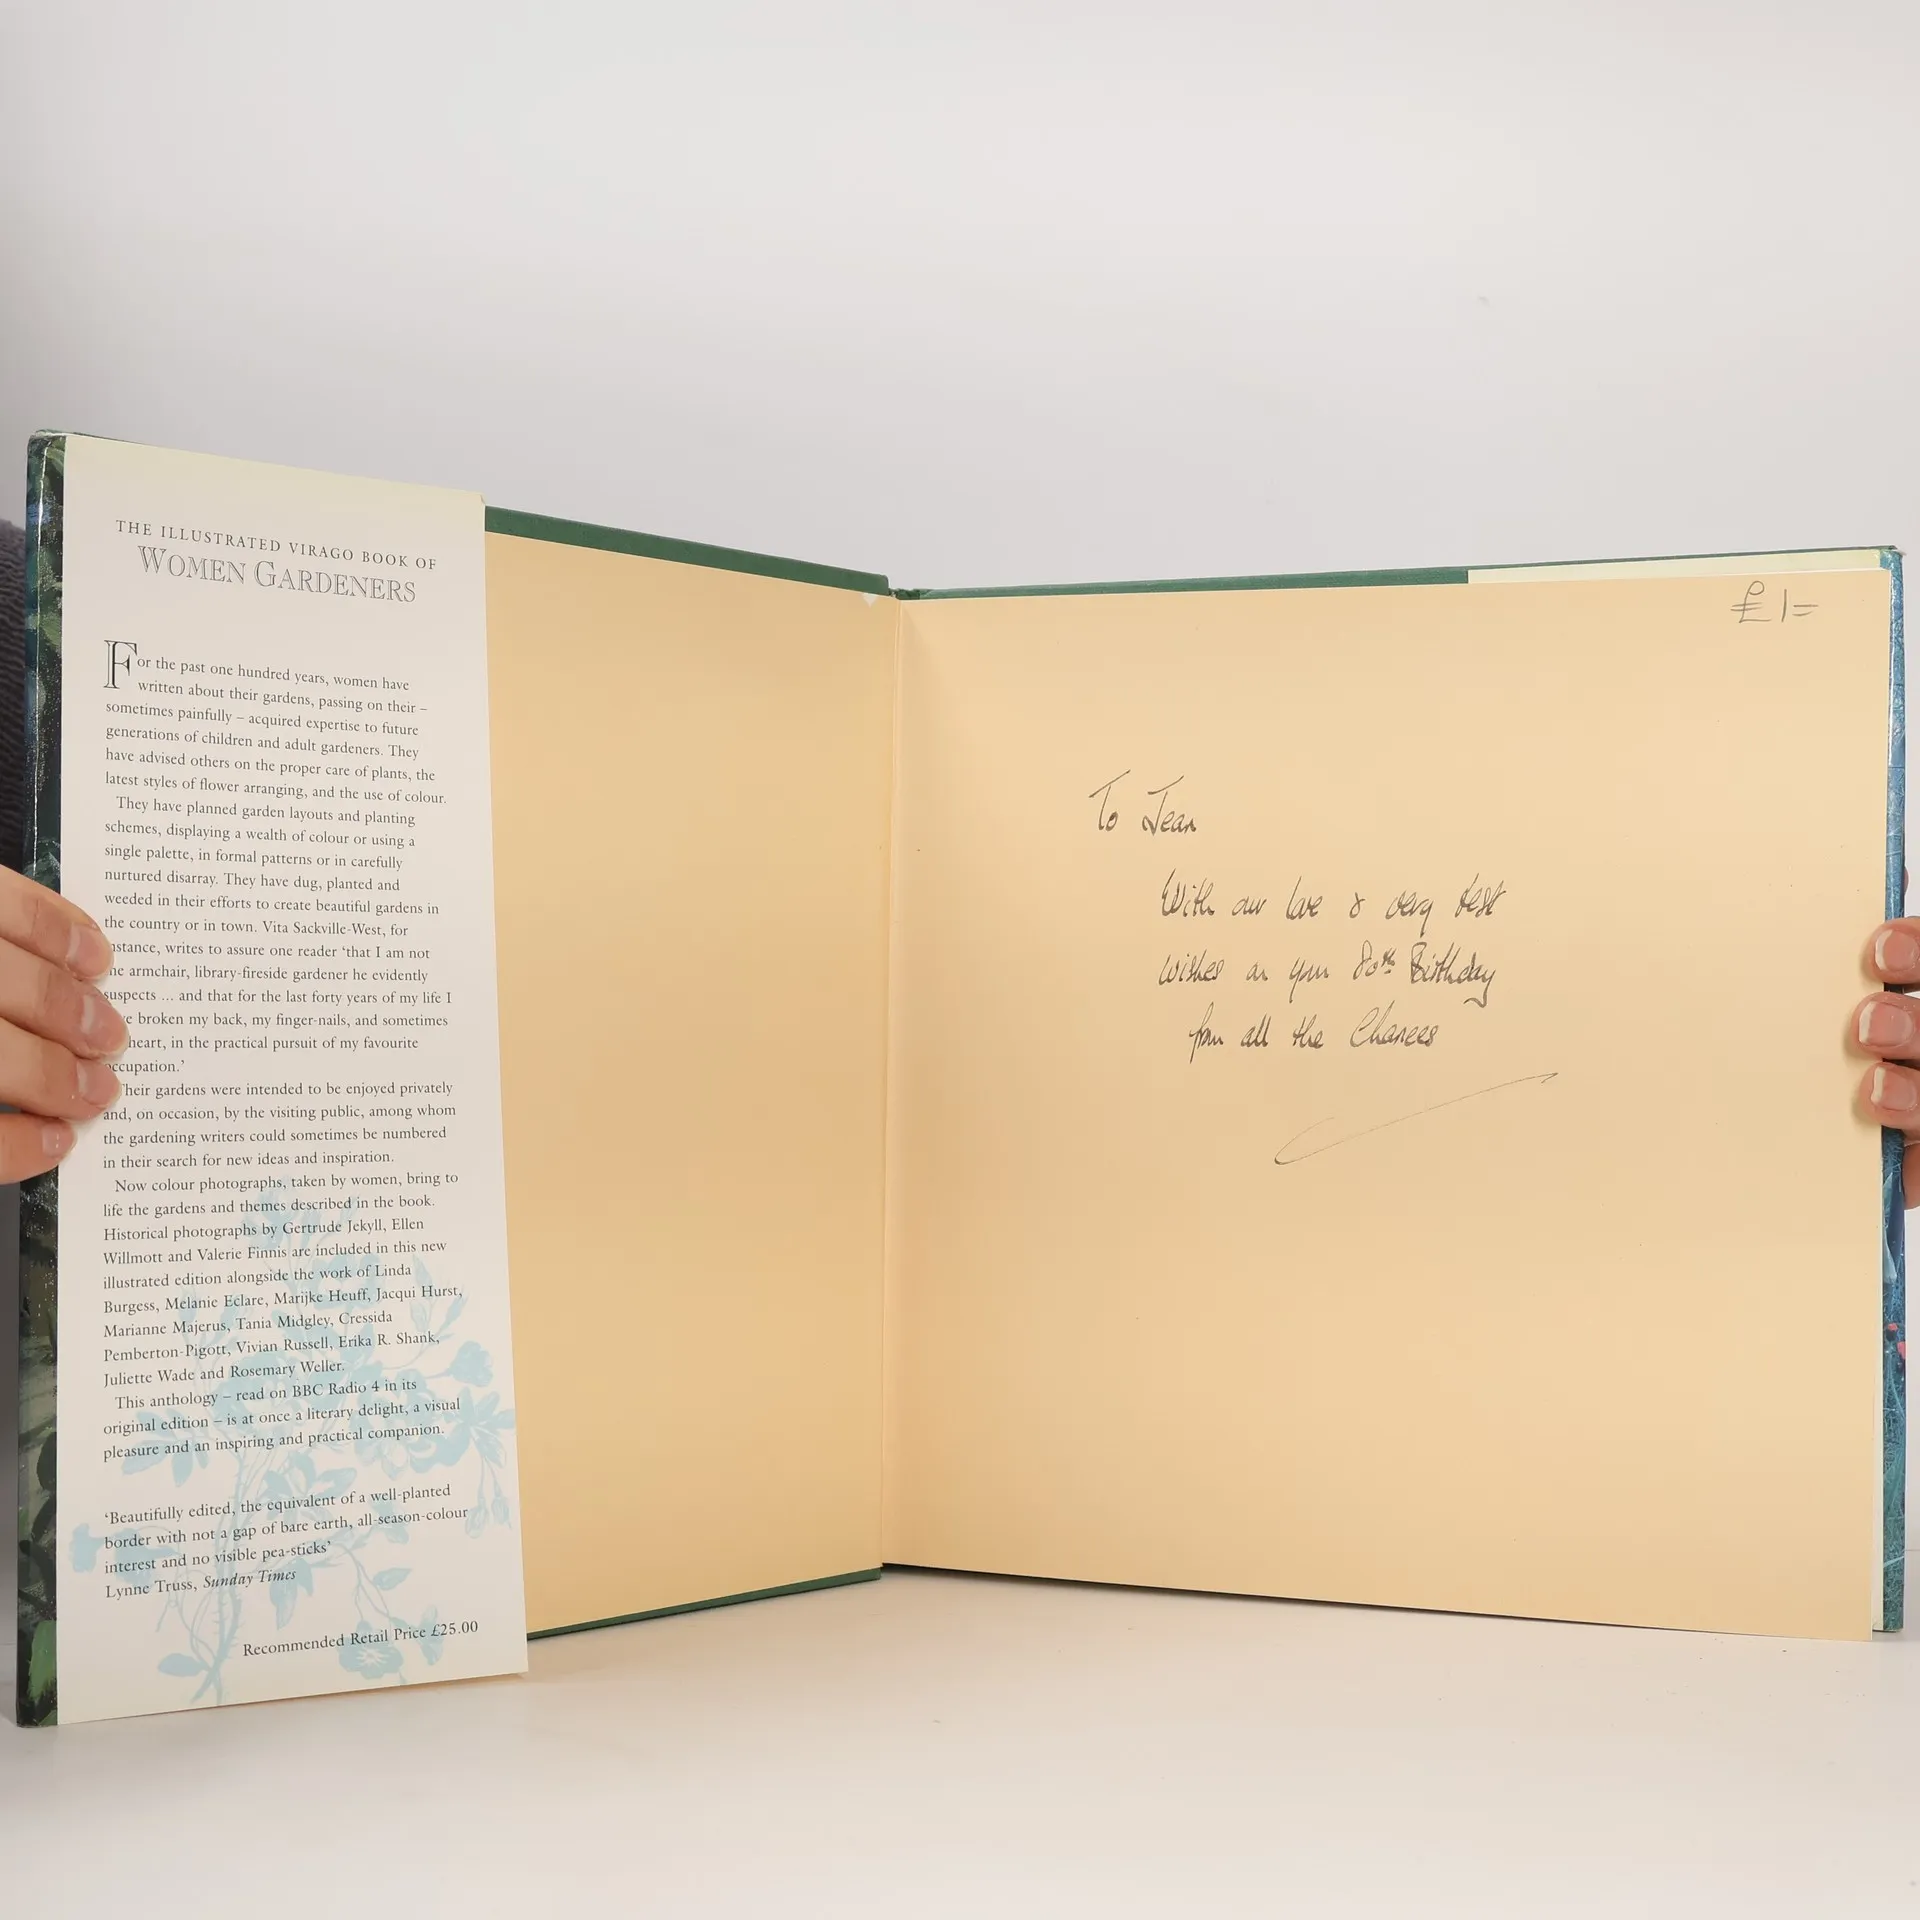 THE ILLUSTRATED VIRAGO BOOK OF
WOMEN GARDENERS
For the past one hundred years, women have
written about their gardens, passing on their –
sometimes painfully – acquired expertise to future
generations of children and adult gardeners. They
have advised others on the proper care of plants, the
latest styles of flower arranging, and the use of colour.
They have planned garden layouts and planting
schemes, displaying a wealth of colour or using a
single palette, in formal patterns or in carefully
nurtured disarray. They have dug, planted and
weeded in their efforts to create beautiful gardens in
the country or in town. Vita Sackville-West, for
nstance, writes to assure one reader ‘that I am not
he armchair, library-fireside gardener he evidently
suspects ... and that for the last forty years of my life I
e broken my back, my finger-nails, and sometimes
heart, in the practical pursuit of my favourite
occupation.’
Their gardens were intended to be enjoyed privately
and, on occasion, by the visiting public, among whom
the gardening writers could sometimes be numbered
in their search for new ideas and inspiration.
Now colour photographs, taken by women, bring to
life the gardens and themes described in the book.
Historical photographs by Gertrude Jekyll, Ellen
Willmott and Valerie Finnis are included in this new
illustrated edition alongside the work of Linda
Burgess, Melanie Eclare, Marijke Heuff, Jacqui Hurst,
Marianne Majerus, Tania Midgley, Cressida
Pemberton-Pigott, Vivian Russell, Erika R. Shank,
Juliette Wade and Rosemary Weller.
This anthology – read on BBC Radio 4 in its
original edition – is at once a literary delight, a visual
pleasure and an inspiring and practical companion.
‘Beautifully edited, the equivalent of a well-planted
border with not a gap of bare earth, all-season-colour
interest and no visible pea-sticks’
Lynne Truss, Sunday Times
Recommended Retail Price £25.00
£1=
To Jean
With our love & very best
wishes on your 80th Birthday
from all the